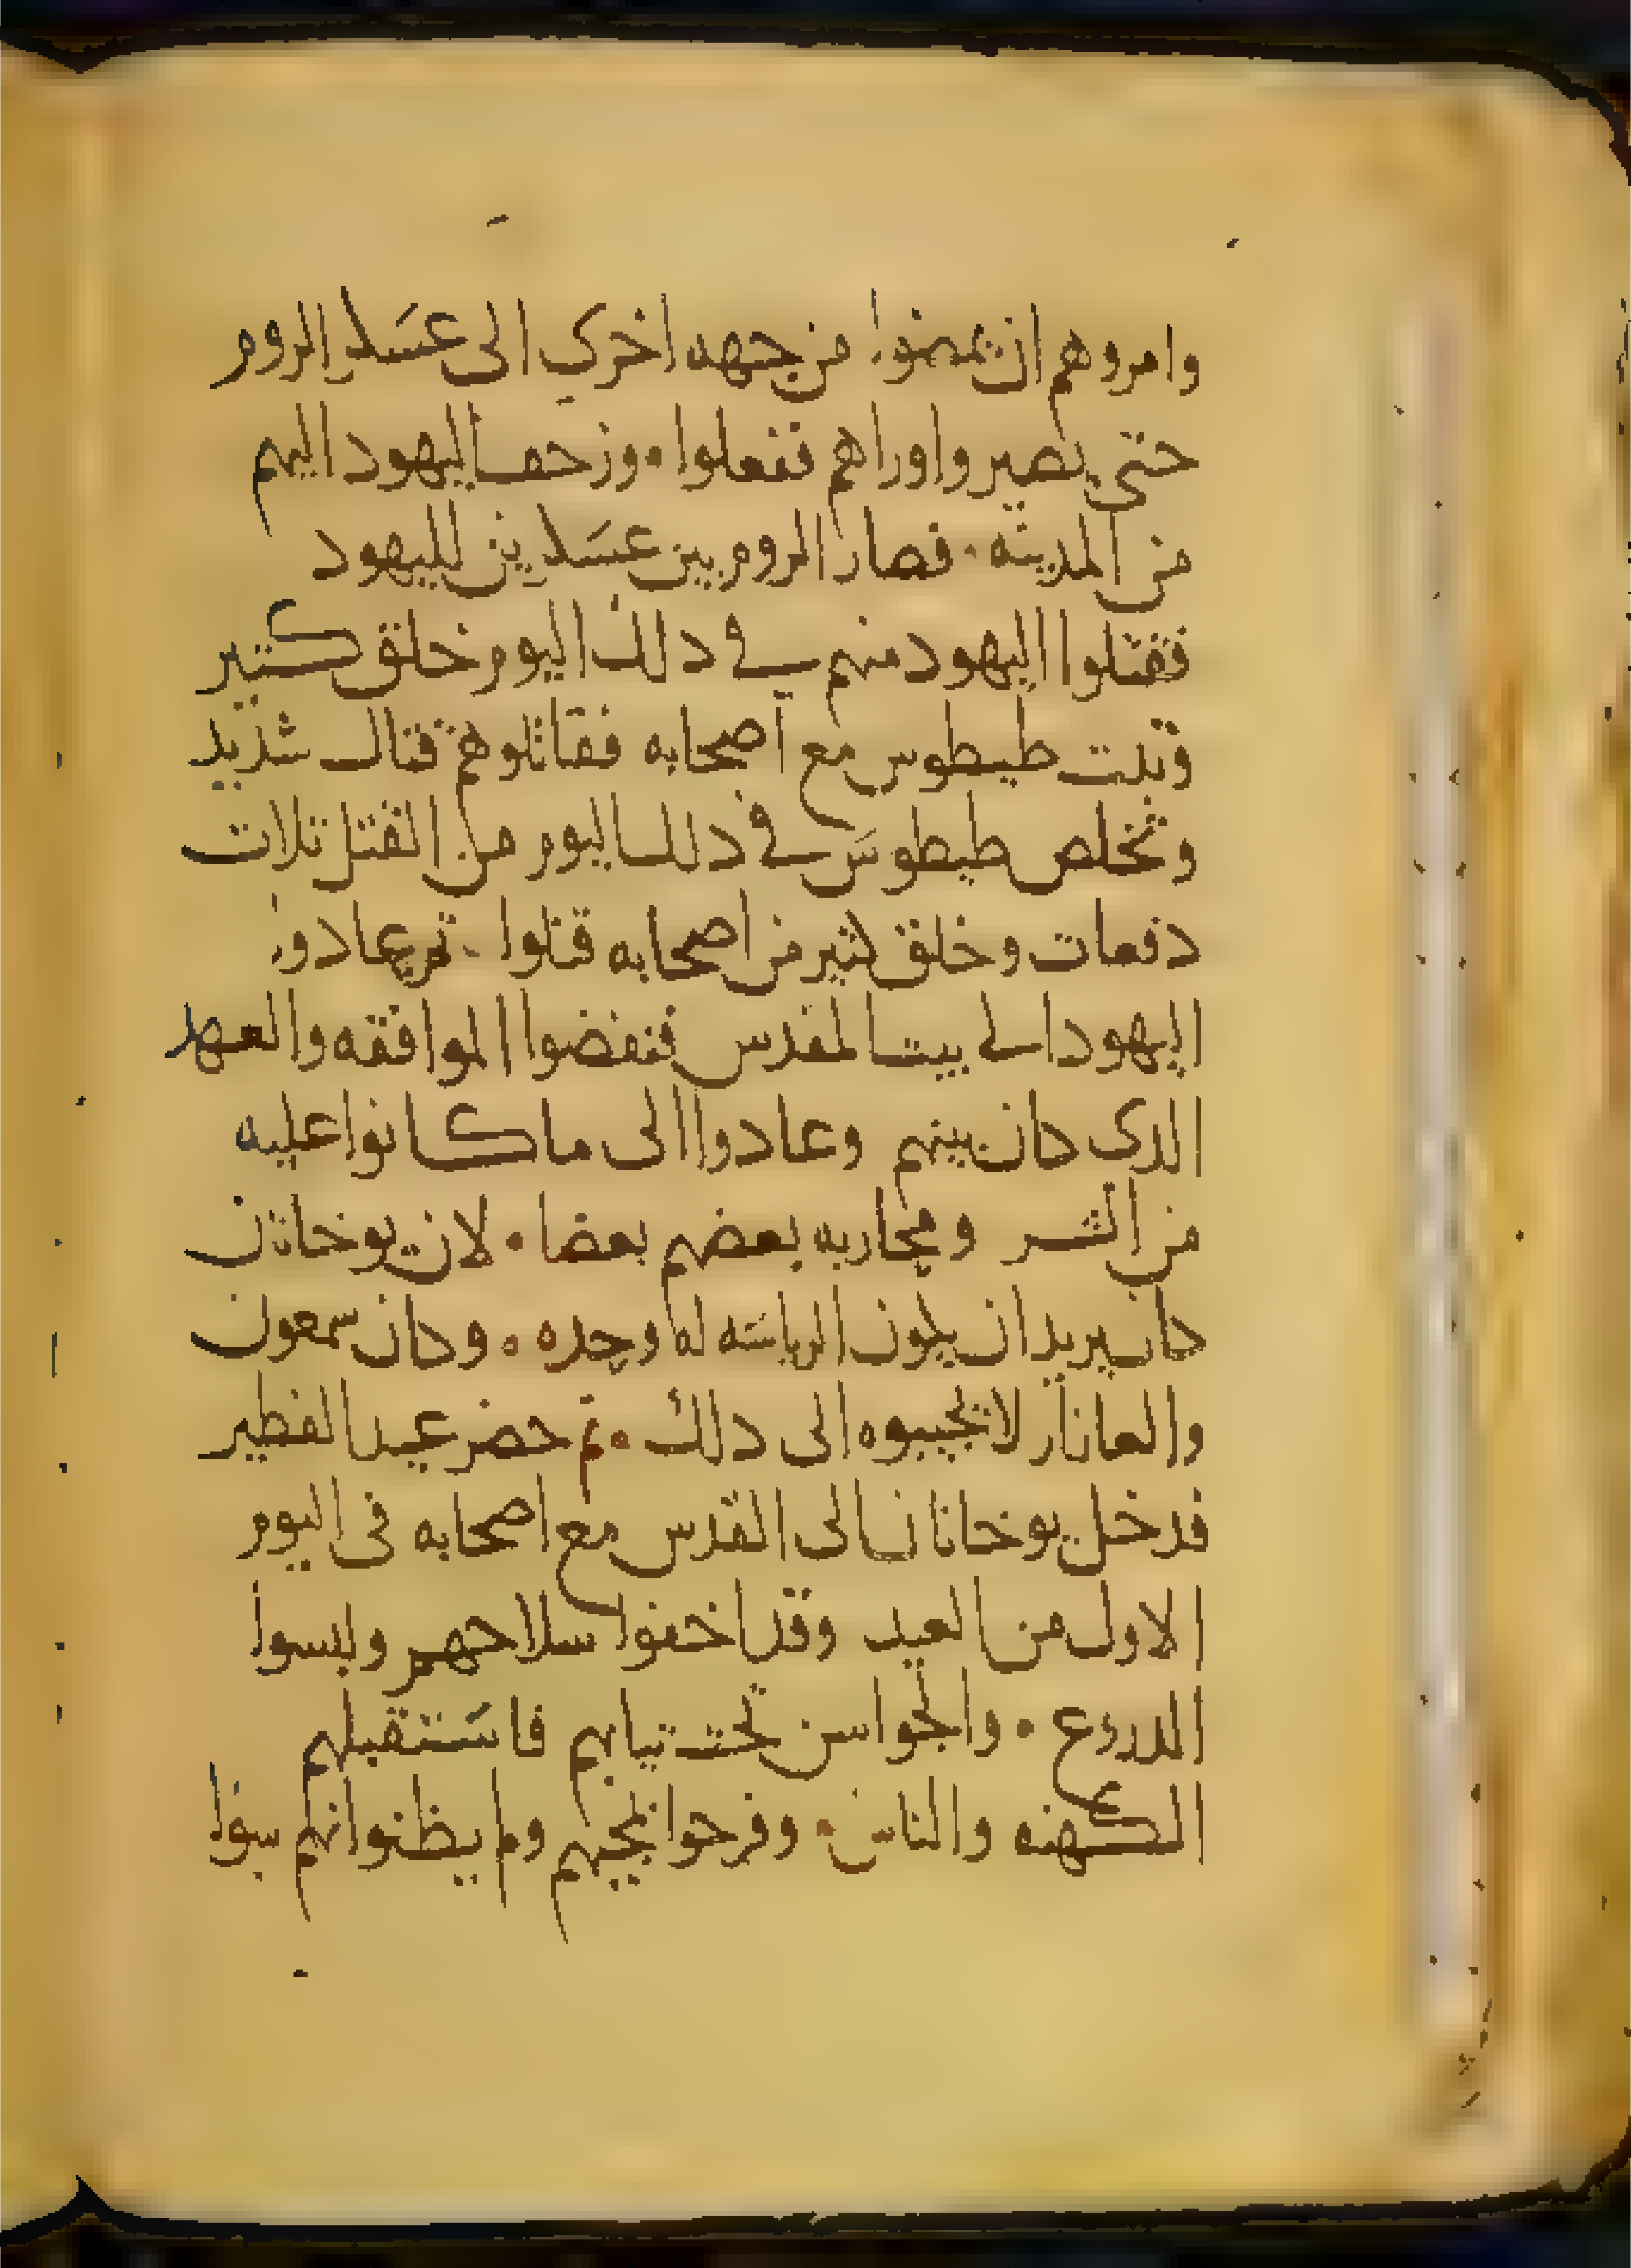 وامروهم ان يمضوا من جهه اخرى الى عسكر الروم
حتى يصيروا وراهم ففعلوا • وزحف اليهود اليهم
من المدينه • فصار الروم بين عسكرين لليهود
فقتلوا اليهود منهم في دلك اليوم خلق كتير
وتبت طيطوس مع اصحابه فقاتلوهم قتال شديد
وتخلص طيطوس في دلك اليوم من القتل تلات
دفعات وخلق كتير من اصحابه قتلوا • تم عادوا
اليهود الى بيت المقدس فنقضوا الموافقه والعهد
الدى كان بينهم وعادوا الى ما كانوا عليه
من الشر ومحاربه بعضهم بعضا • لان يوخانان
كان يريد ان يكون الرياسه له وحده • وكان سمعون
والعازار لا يجيبوه الى دلك • تم حضر عيد الفطير
فدخل يوخانان الى القدس مع اصحابه فى اليوم
الاول من العيد وقد اخفوا سلاحهم ولبسوا
الدروع • والجواسن تحت تيابهم فاستقبلهم
الكهنه والناس • وفرحوا بمجيهم ولم يظنوا بهم سوا